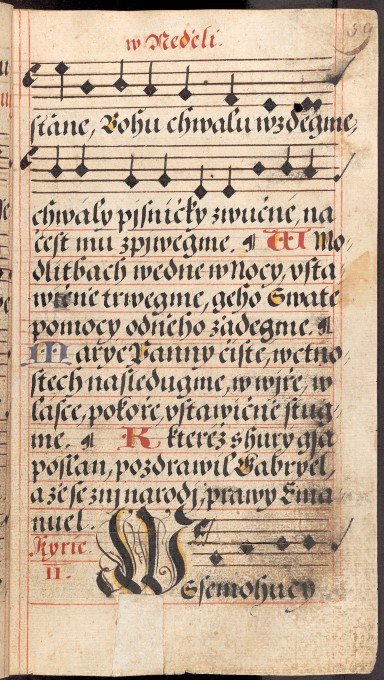 w Neděli.
59
stáně, Bohu chwalu wzdegme,
chwály pjsničky zwučné, na
čest mu zpjwegme. ¶ W Mo-
dlitbach wedne w Nocy, vsta-
wičně trwegme, geho Swaté
pomocy odněho žádegme. ¶
Marye Panny čisté, wctno-
stech nasledugme, w wjře, w
lasce, pokoře, vstawičně stug-
me. ¶ K kteréž shury gsa
poslan, pozdrawil Gabryel,
a že se znj narodj, prawy Ema-
nuel.
Kyrie
II.
Wssemohucy